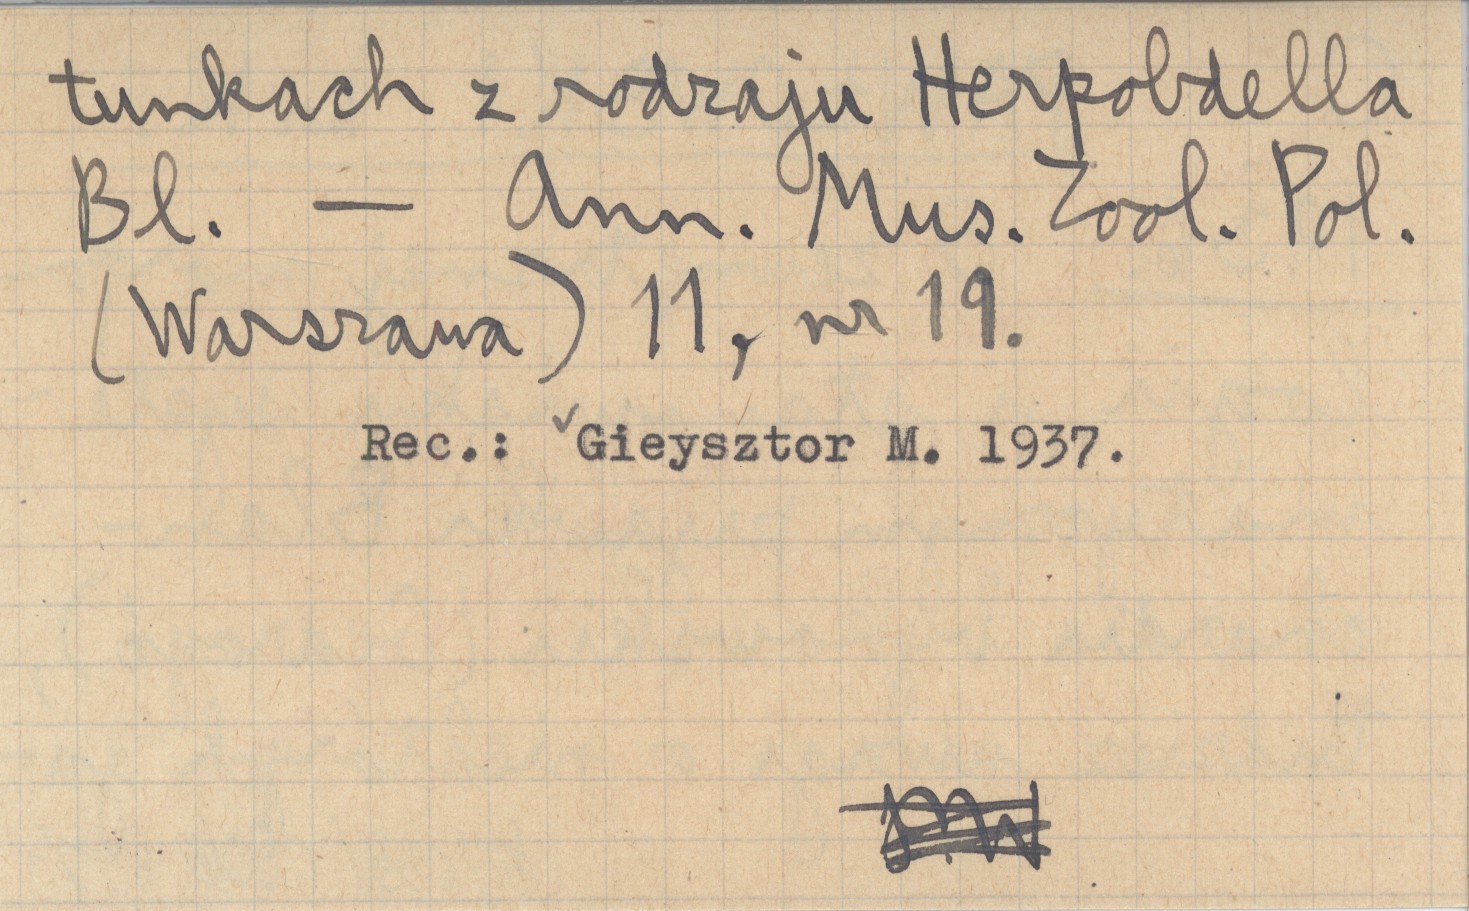 tunkach z rodzaju Herpobdella
Bl. — Ann. Mus. Zool. Pol.
(Warszawa) 11, nr 19.
Rec.: ✓Gieysztor M. 1937.